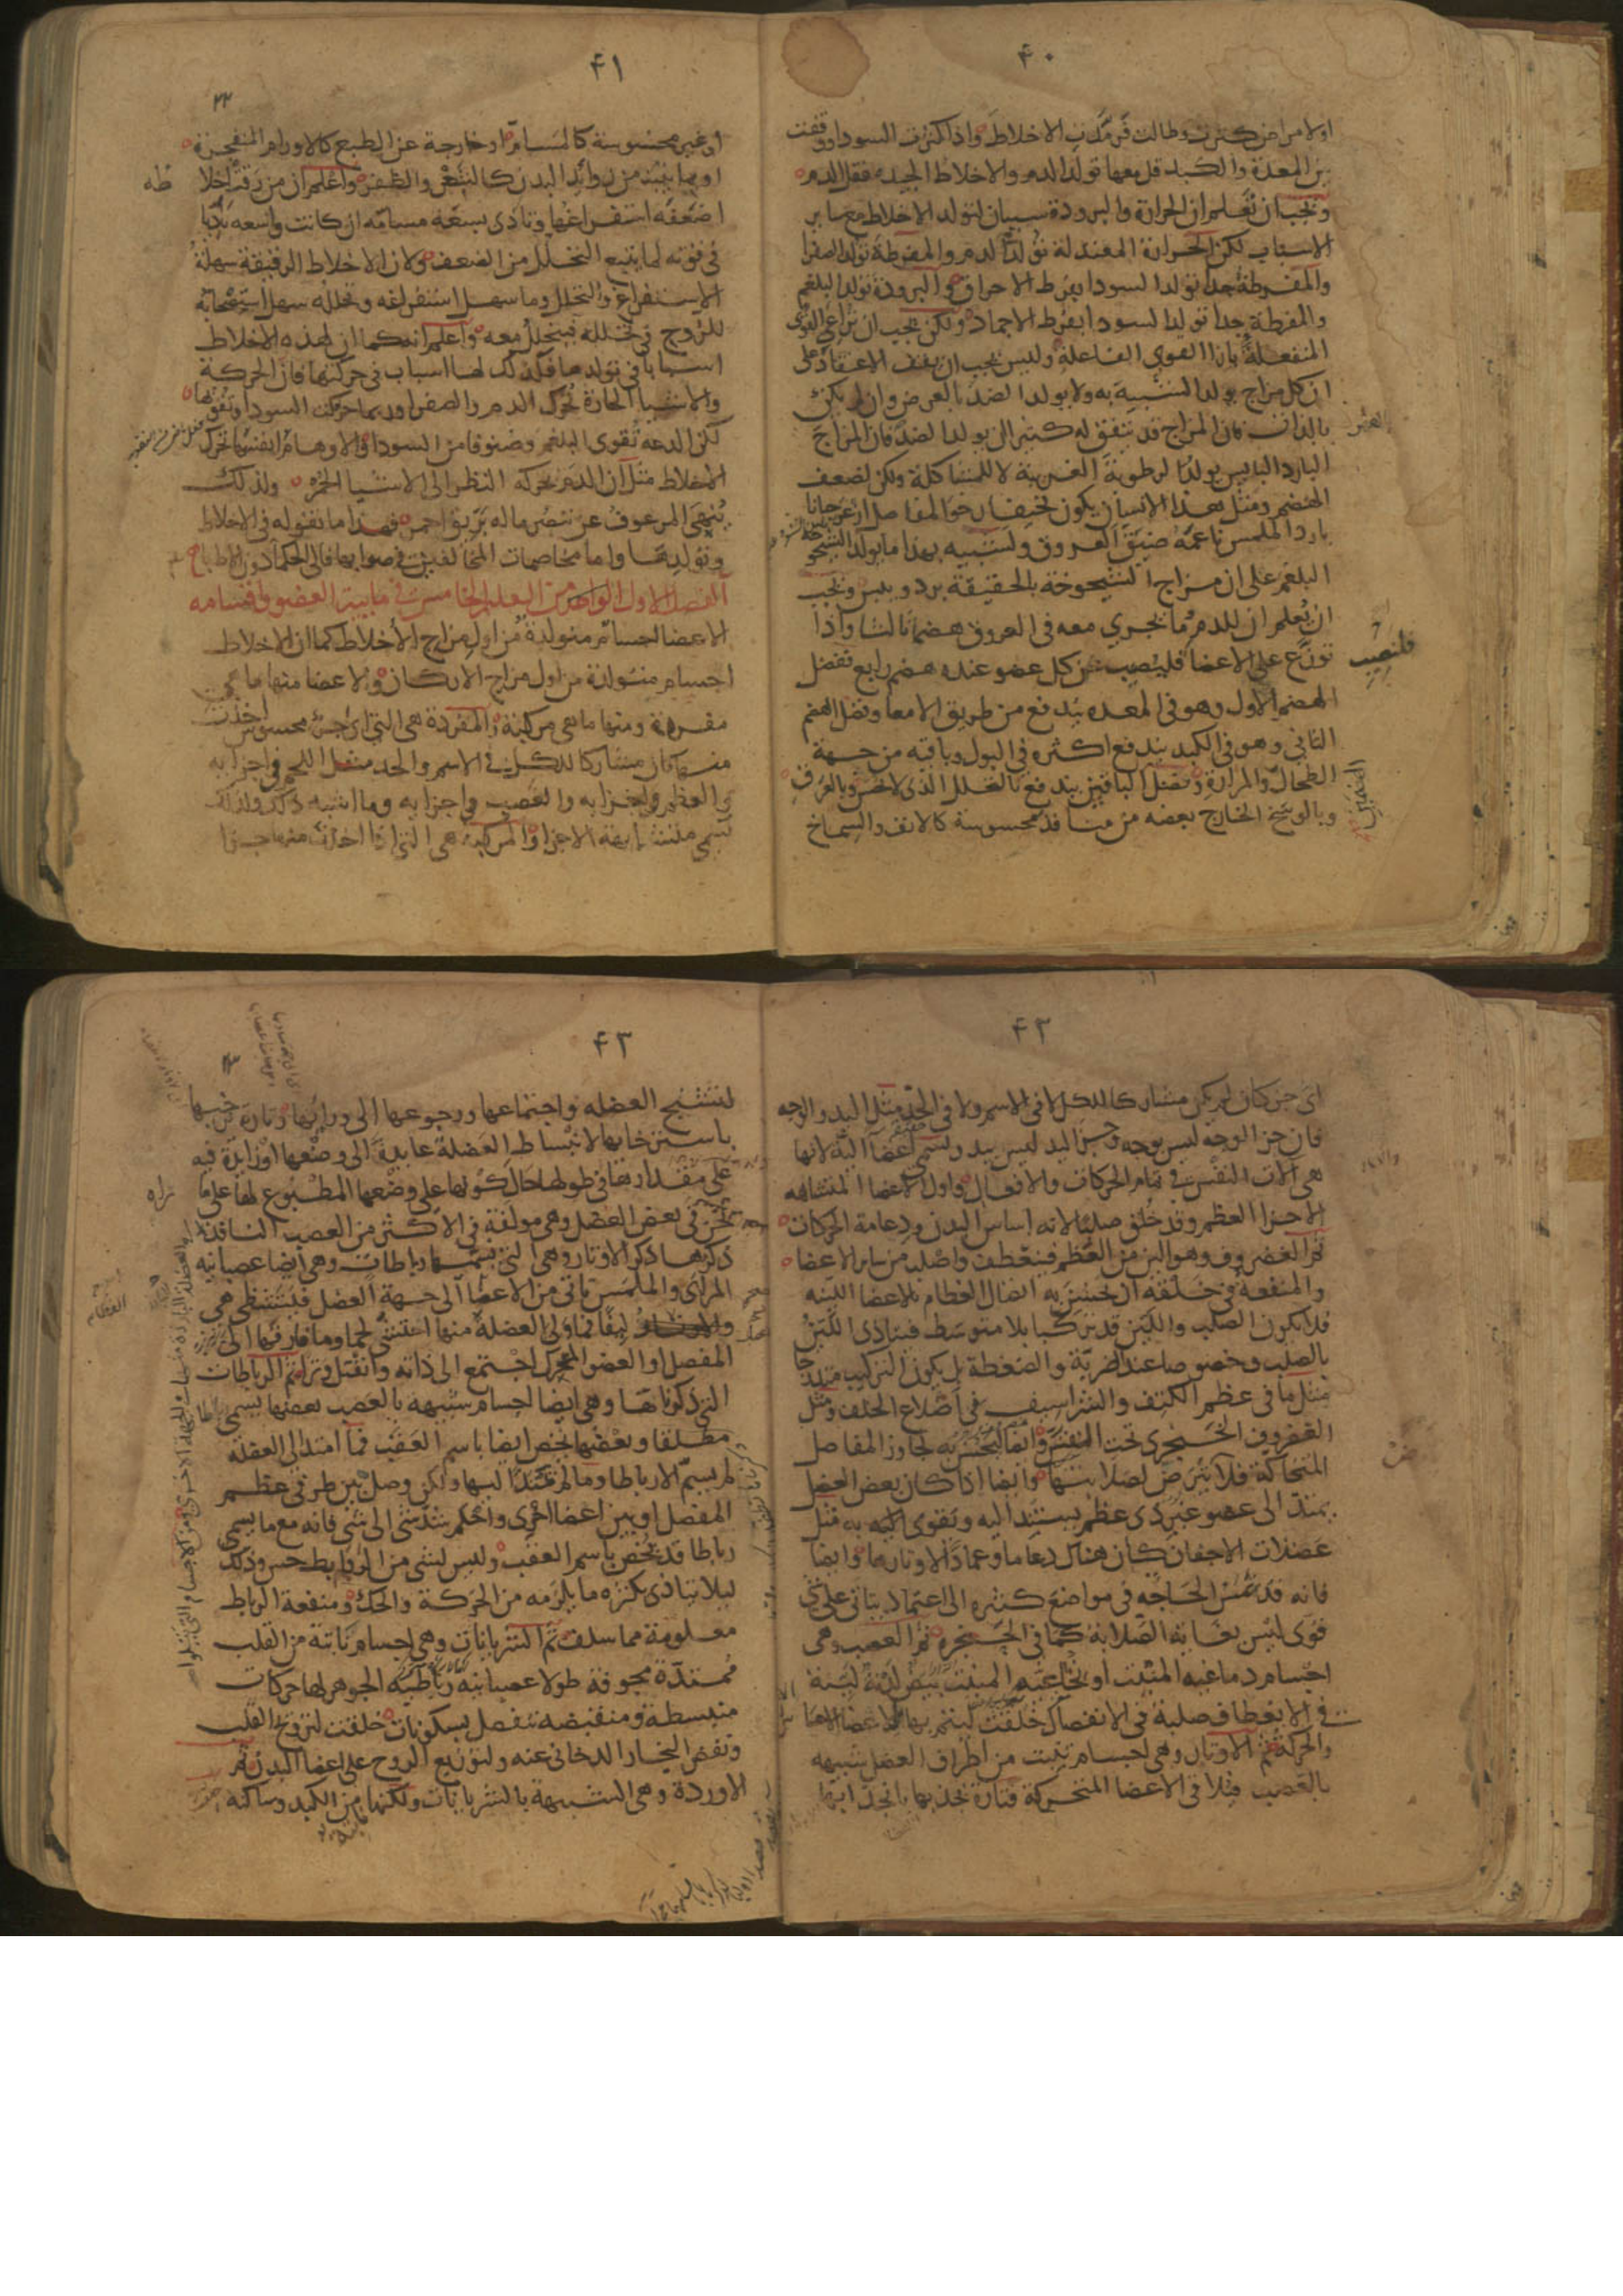 ۴۰
اولامراض كثرت وطالت فرمدت الاخلاط واذا كثرت السودا ووقفت
بين المعدة والكبد قل معها تولد الدم والاخلاط الجيده فقل الدم
ويجب ان تعلم ان الحرارة والبرودة سببان لتولد الاخلاط مع ساير
الاسباب لكن الحرارة المعتدلة تولد الدم والمفرطة تولد الصفرا
والمفرطة جدا تولد السودا بفرط الاحراق والبرودة تولد البلغم
والمفرطة جدا تولد السودا بفرط الاجماد ولكن يجب ان تراعى القوى
المنفعلة بازا القوى الفاعلة وليس يجب ان يقف الاعتقاد على
ان كل مزاج يولد الشبيه به ولا يولد الضد بالعرض وان لم يكن
بالذات فان المزاج قد يتفق له كثيرا ان يولد الضد فان المزاج
البارد اليابس يولد الرطوبة الغريبة لا للمشاكلة ولكن لضعف
الهضم ومثل هذا الانسان يكون نحيفا رخو المفاصل ازعر جبانا
بارد الملمس ناعمه ضيق العروق وشبيه بهذا ما يولد الشيخوخة
البلغم على ان مزاج الشيخوخة بالحقيقة برد ويبس ويجب
ان تعلم ان للدم وما يجري معه في العروق هضما ثالثا واذا
توزع على الاعضا فليصب كل عضو عنده هضم رابع ففضل
الهضم الاول وهو في المعده يندفع من طريق الامعا وفضل الهضم
الثاني وهو في الكبد يندفع اكثره في البول وباقيه من جهة
الطحال والمرارة وفضل الباقيين يندفع بالتحلل الذى لا يحس وبالعرق
وبالوسخ الخارج بعضه من منافذ محسوسة كالانف والسماخ
فلنصيب
۴۱
۲۲
او غير محسوسة كالمسام او خارجة عن الطبع كالاورام المنفجرة
او بما ينبت من زوائد البدن كالشعر والظفر واعلم ان من رقت اخلا
طه
اضعفه استفراغها وتاذى بسعة مسامه ان كانت واسعة تاذيا
في قوته لما يتبع التحلل من الضعف ولان الاخلاط الرقيقة سهلة
الاستفراغ والتحلل وما سهل استفراغه وتحلله سهل استصحابه
للروح في تحلله فيتحلل معه واعلم انه كما ان لهذه الاخلاط
اسبابا في تولدها فكذلك لها اسباب في حركتها فان الحركة
والاشيا الحارة تحرك الدم والصفرا وربما حركت السودا وتقويها
لكن الدعه تقوى البلغم وصنوفا من السودا والاوهام انفسها تحرك
الاخلاط مثل ان الدم يحركه النظر الى الاشيا الحمر ولذلك
ينهى المرعوف عن تبصر ماله بريق احمر فهذا ما نقوله في الاخلاط
وتوليدها واما مخاصمات المخالفين في صوابها فالى الحكما دون الاطبا
الفصل الاول الواحد من التعليم الخامس في مايية العضو واقسامه
الاعضا اجسام متولدة من اول مزاج الاخلاط كما ان الاخلاط
اجسام متولدة من اول مزاج الاركان والاعضا منها ما هي
مفردة ومنها ما هي مركبة والمفردة هي التي اى جز محسوس اخذت
منها كان مشاركا للكل في الاسم والحد مثل اللحم واجزايه
والعظم واجزايه والعصب واجزايه وما اشبه ذلك ولذلك
تسمى متشابهة الاجزا والمركبة هي التي اذا اخذت منها جزا
۴۲
اى جز كان لم يكن مشاركا للكل لا في الاسم ولا في الحد مثل اليد والوجه
فان جز الوجه ليس بوجه وجز اليد ليس بيد وتسمى اعضا الية لانها
هي الات النفس في تمام الحركات والافعال واول الاعضا المتشابهه
الاجزا العظم وقد خلق صلبا لانه اساس البدن ودعامة الحركات
ثم الغضروف وهو الين من العظم فينعطف واصلب من ساير الاعضا
والمنفعة في خلقه ان يحسن به اتصال العظام بالاعضا اللينه
فلا يكون الصلب واللين قد تركبا بلا متوسط فيتاذى اللين
بالصلب وخصوصا عند الضربة والضغطة بل يكون التركيب متدرجا
مثل ما في عظم الكتف والشراسيف في اضلاع الخلف ومثل
الغضروف الخنجرى تحت القس وايضا ليحسن به تجاوز المفاصل
المتحاكة فلا تترض لصلابتها وايضا اذا كان بعض العضل
يمتد الى عضو غير ذى عظم يستند اليه ويقوى به مثل
عضلات الاجفان كان هناك دعاما وعمادا لاوتارها وايضا
فانه قد تمس الحاجة في مواضع كثيره الى اعتماد يتاتى على شي
قوى ليس بغاية الصلابة كما في الحنجره ثم العصب وهي
اجسام دماغية المنبت او نخاعية المنبت بيض لدنة لينة
في الانعطاف صلبة في الانفصال خلقت ليتم بها للاعضا الاحساس
والحركة ثم الاوتار وهي اجسام تنبت من اطراف العضل شبيهه
بالعصب فتلاقى الاعضا المتحركة فتارة تجذبها بانجذابها
۴۳
لتشنج العضله واجتماعها ورجوعها الى ورايها وتارة ترخيها
باسترخايها لانبساط العضلة عايدة الى وضعها او زايدة فيه
على مقدارها في طولها حال كونها على وضعها المطبوع لها على ما
نحن في بعض العضل وهي مولفة في الاكثر من العصب النافذ
ذكرها ذكر الاوتار وهي التي نسميها رباطات وهي ايضا عصبانيه
المراى والملمس تاتى من الاعضا الى جهة العضل فتتشظى هي
والاوتار ليفا فما ولى العضلة منها احتشى لحما وما فارقها الى
المفصل او العضو المحرك اجتمع الى ذاته وانفتل وترا ثم الرباطات
التي ذكرناها وهي ايضا اجسام شبيهه بالعصب بعضها يسمى رباطا
مطلقا وبعضها يخص ايضا باسم العقب فما امتد الى العضلة
لم يسم الا رباطا وما لم يمتد اليها ولكن وصل بين طرفي عظم
المفصل او بين اعضا اخرى واحكم شد شى الى شى فانه مع ما يسمى
رباطا قد يخص باسم العقب وليس لشى من الروابط حس وذلك
ليلا يتاذى بكثرة ما يلزمه من الحركة والحك ومنفعة الرباط
معلومة مما سلف ثم الشريانات وهي اجسام نابتة من القلب
ممتدة مجوفة طولا عصبانيه رباطيه الجوهر لها حركات
منبسطة ومنقبضة تنفصل بسكونات خلقت لترويح القلب
ونفض البخار الدخانى عنه ولتوزيع الروح على اعضا البدن ثم
الاوردة وهي الشبيهة بالشريانات ولكنها من الكبد وساكنه